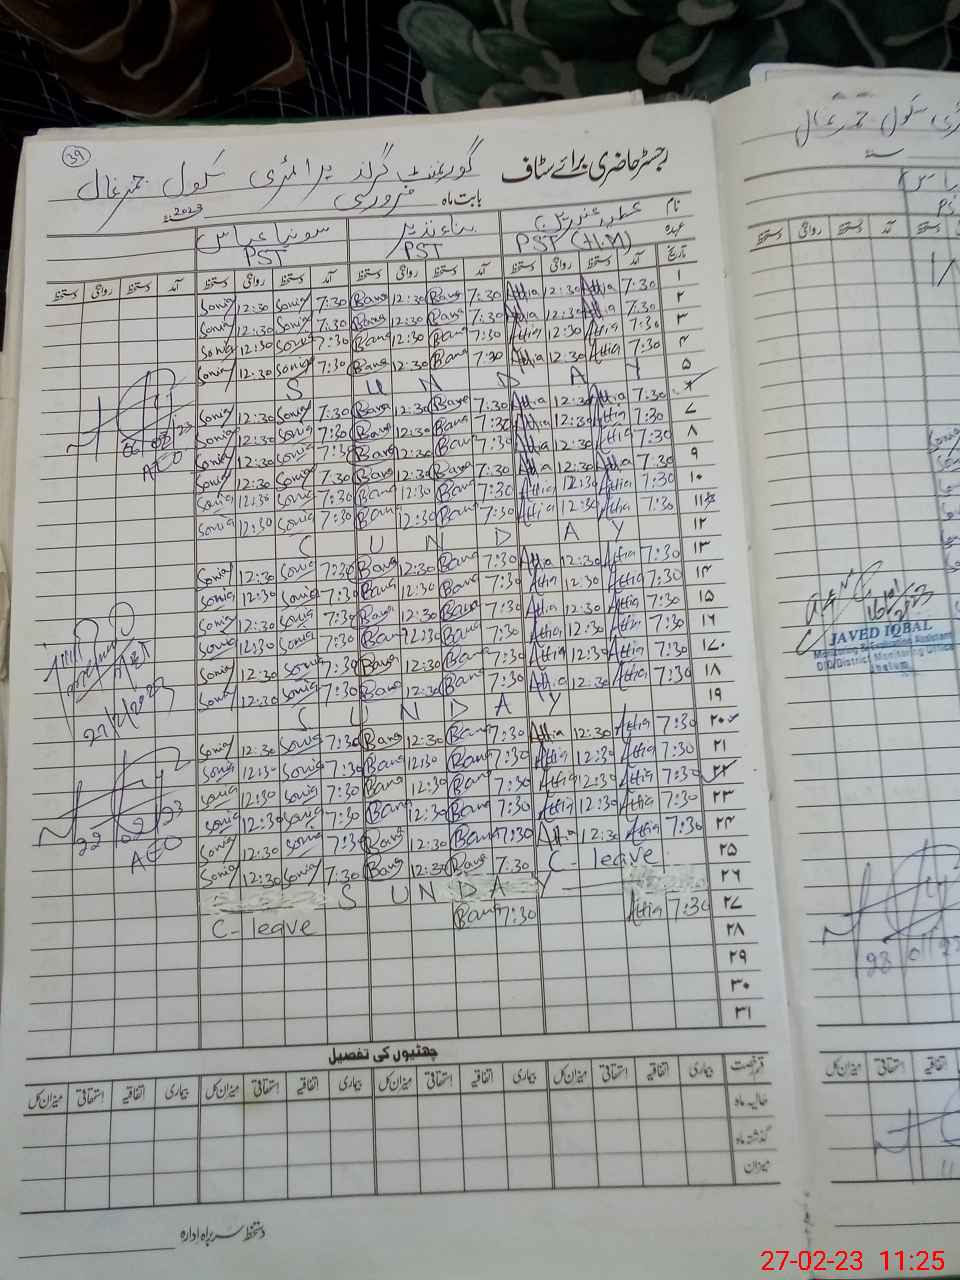 39
رجسٹر حاضری برائے سٹاف گورنمنٹ گرلز پرائمری سکول
بابت ماہ فروری 2023
نام
عہدہ PST (H.M) PST PST
تاریخ آمد دستخط روانگی دستخط آمد دستخط روانگی دستخط آمد دستخط روانگی دستخط آمد دستخط روانگی دستخط
۱ 7:30 Attia 12:30 Attia 7:30 Bano 12:30 Bano 7:30 Sonia 12:30 Sonia
۲ 7:30 Attia 12:30 Attia 7:30 Bano 12:30 Bano 7:30 Sonia 12:30 Sonia
۳ 7:30 Attia 12:30 Attia 7:30 Bano 12:30 Bano 7:30 Sonia 12:30 Sonia
۴ 7:30 Attia 12:30 Attia 7:30 Bano 12:30 Bano 7:30 Sonia 12:30 Sonia
۵ S U N D A Y
7:30 Attia 12:30 Attia 7:30 Bano 12:30 Bano 7:30 Sonia 12:30 Sonia
۷ 7:30 Attia 12:30 Attia 7:30 Bano 12:30 Bano 7:30 Sonia 12:30 Sonia
۸ 7:30 Attia 12:30 Attia 7:30 Bano 12:30 Bano 7:30 Sonia 12:30 Sonia
۹ 7:30 Attia 12:30 Attia 7:30 Bano 12:30 Bano 7:30 Sonia 12:30 Sonia
۱۰ 7:30 Attia 12:30 Attia 7:30 Bano 12:30 Bano 7:30 Sonia 12:30 Sonia
۱۱ 7:30 Attia 12:30 Attia 7:30 Bano 12:30 Bano 7:30 Sonia 12:30 Sonia
۱۲ S U N D A Y
۱۳ 7:30 Attia 12:30 Attia 7:30 Bano 12:30 Bano 7:30 Sonia 12:30 Sonia
۱۴ 7:30 Attia 12:30 Attia 7:30 Bano 12:30 Bano 7:30 Sonia 12:30 Sonia
۱۵ 7:30 Attia 12:30 Attia 7:30 Bano 12:30 Bano 7:30 Sonia 12:30 Sonia
۱۶ 7:30 Attia 12:30 Attia 7:30 Bano 12:30 Bano 7:30 Sonia 12:30 Sonia
۱۷ 7:30 Attia 12:30 Attia 7:30 Bano 12:30 Bano 7:30 Sonia 12:30 Sonia
۱۸ 7:30 Attia 12:30 Attia 7:30 Bano 12:30 Bano 7:30 Sonia 12:30 Sonia
۱۹ S U N D A Y
۲۰ 7:30 Attia 12:30 Attia 7:30 Bano 12:30 Bano 7:30 Sonia 12:30 Sonia
۲۱ 7:30 Attia 12:30 Attia 7:30 Bano 12:30 Bano 7:30 Sonia 12:30 Sonia
۲۲ 7:30 Attia 12:30 Attia 7:30 Bano 12:30 Bano 7:30 Sonia 12:30 Sonia
۲۳ 7:30 Attia 12:30 Attia 7:30 Bano 12:30 Bano 7:30 Sonia 12:30 Sonia
۲۴ 7:30 Attia 12:30 Attia 7:30 Bano 12:30 Bano 7:30 Sonia 12:30 Sonia
۲۵ C- leave 7:30 Bano 12:30 Bano 7:30 Sonia 12:30 Sonia
۲۶ S U N D A Y
۲۷ 7:30 Attia 7:30 Bano C- leave
۲۸
۲۹
۳۰
۳۱
AEO
27/2/2023
22 02 23
AEO
چھٹیوں کی تفصیل
قسم رخصت بیماری اتفاقیہ استحقاقی میزان کل بیماری اتفاقیہ استحقاقی میزان کل بیماری اتفاقیہ استحقاقی میزان کل بیماری اتفاقیہ استحقاقی میزان کل
حالیہ ماہ
گذشتہ ماہ
میزان
دستخط سربراہ ادارہ
JAVED IQBAL
Monitoring & Evaluation Assistant
O/O District Monitoring Officer
Jhelum
27-02-23 11:25